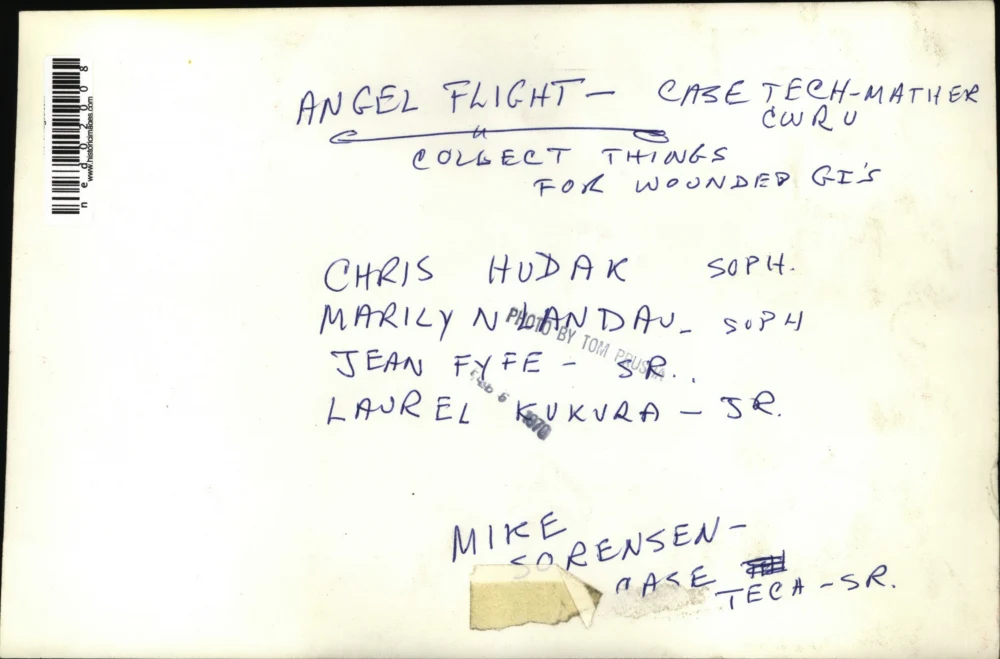 ANGEL FLIGHT — CASE TECH-MATHER
CWRU
COLLECT THINGS
FOR WOUNDED GI'S
CHRIS HUDAK SOPH.
MARILYN LANDAU - SOPH
PHOTO BY TOM PRUSHA
JEAN FYFE - SR.
FEB 6 1970
LAUREL KUKURA - JR.
MIKE
SORENSEN -
CASE
TECH - SR.
ned02008
www.historicimages.com